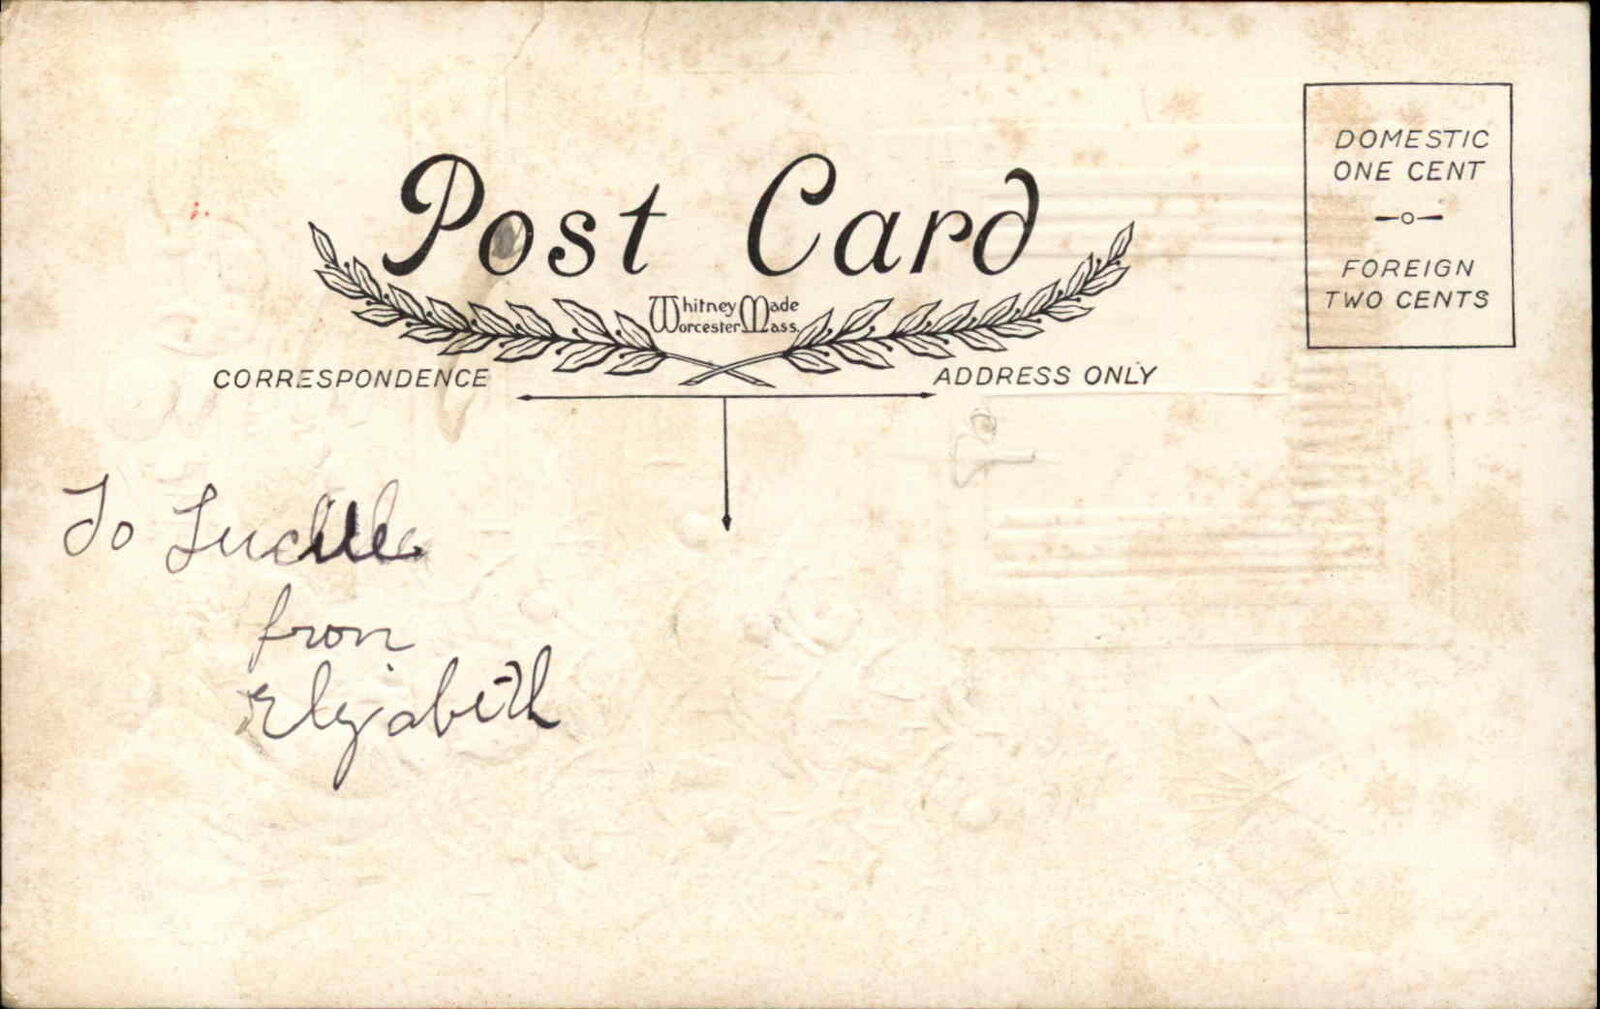 Post Card
Whitney Made
Worcester Mass.
DOMESTIC
ONE CENT
FOREIGN
TWO CENTS
CORRESPONDENCE
ADDRESS ONLY
To Lucille
from
Elizabeth